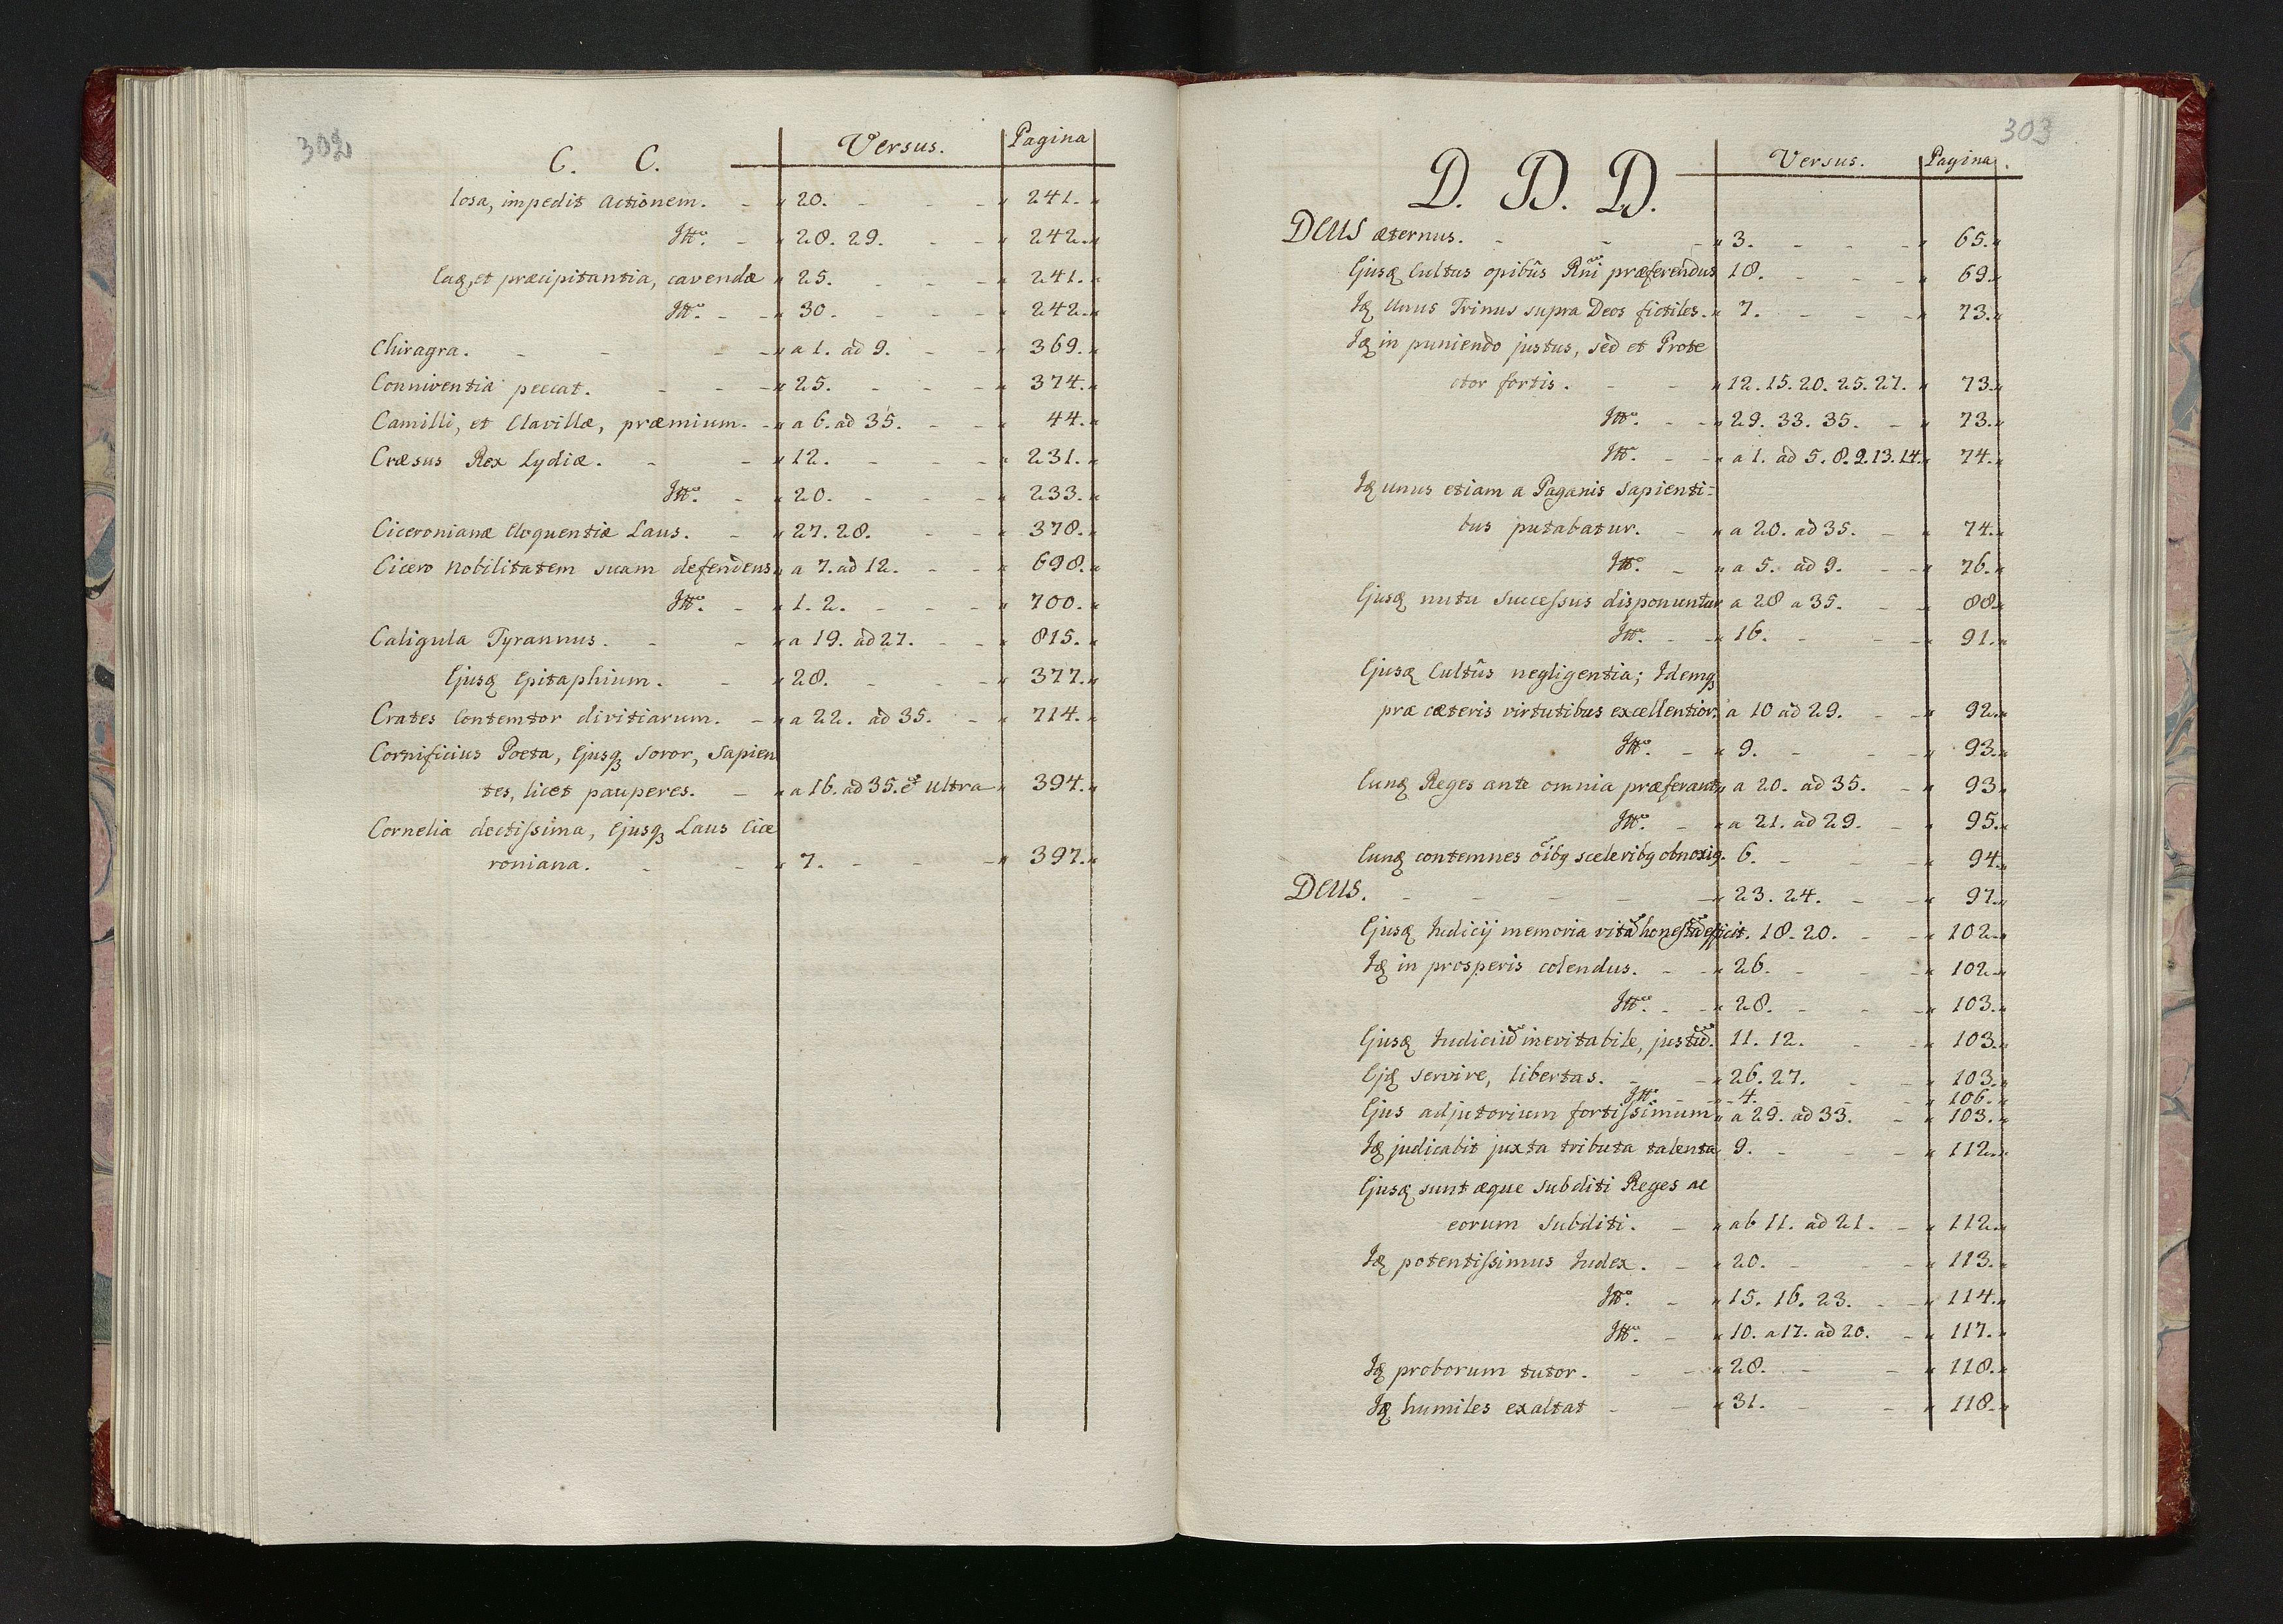 302
C. C. Versus. Pagina
losa, impedit Actionem. - „ 20. - - - „ 241. „
Itt.º - „ 28. 29. - - „ 242. „
Eaq, et præcipitantia, cavendæ „ 25. - - - „ 241. „
Itt.º - - „ 30. - - - „ 242. „
Chiragra. - - - - „ a 1. ad 9. - - „ 369. „
Conniventia peccat. - - - „ 25. - - - „ 374. „
Camilli, et Clavillæ, præmium. - „ a 6. ad 35. - - „ 44. „
Cræsus Rex Lydiæ. - - „ 12. - - - „ 231. „
Itt.º - „ 20. - - - „ 233. „
Ciceronianæ Eloquentiæ Laus. - „ 27. 28. - - „ 378. „
Cicero Nobilitatem suam defendens „ a 7. ad 12. - - „ 698. „
Itt.º - „ 1. 2. - - - „ 700. „
Caligula Tyrannus. - - „ a 19. ad 27. - - „ 815. „
Ejusq Epitaphium. - - „ 28. - - - „ 377. „
Crates Contemtor divitiarum. - „ a 22. ad 35. - „ 714. „
Cornificius Poeta, Ejusq soror, Sapien
tes, licet pauperes. - „ a 16. ad 35. et ultra „ 394. „
Cornelia doctissima, Ejusq Laus Cice
roniana. - - „ 7. - - - „ 397. „
303
D. D. D. Versus. Pagina.
DEUS æternus. - - - „ 3. - - - „ 65. „
Ejusq Cultus opibûs Rni præferendus 18. - - - „ 69. „
Iq Unus Trinus supra Deos fictiles. „ 7. - - - „ 73. „
Iq in puniendo justus, sed et Prote
ctor fortis. - - „ 12. 15. 20. 25. 27. „ 73. „
Itt.º - - „ 29. 33. 35. - „ 73. „
Itt.º - - „ a 1. ad 5. 8. 9. 13. 14. „ 74. „
Iq unus etiam a Paganis Sapienti=
bus putabatur. - „ a 20. ad 35. - „ 74. „
Itt.º - „ a 5. ad 9. - - „ 76. „
Ejusq nutu Successus disponuntur a 28 a 35. - - „ 88. „
Itt.º - - „ 16. - - - „ 91. „
Ejusq Cultûs negligentia; Idemq
præ cæteris virtutibus excellentior. a 10 ad 29. - - „ 92. „
Itt.º - „ 9. - - - „ 93. „
Eunq Reges ante omnia præferant „ a 20. ad 35. - „ 93 „
Itt.º - „ a 21. ad 29. - „ 95. „
Eunq contemnes oibq sceleribq obnoxiq. 6. - - - „ 94. „
DEUS. - - - - - „ 23. 24. - - „ 97. „
Ejusq Judicij memoria vitã honestã efficit. 18. 20. - - „ 102. „
Iq in prosperis colendus. - - „ 26. - - - „ 102. „
Itt.º - - „ 28. - - - „ 103. „
Ejusq Judiciũ inevitabile, justũ. 11. 12. - - „ 103. „
Ejq servire, libertas. - - „ 26. 27. - - „ 103. „
Itt.º - - „ 4. - - „ 106. „
Ejus adjutorium fortissimum „ a 29. ad 33. - „ 103. „
Iq judicabit juxta tributa talenta 9. - - - „ 112. „
Ejusq sunt æque Subditi Reges ac
eorum Subditi. - „ ab 11. ad 21. - „ 112. „
Iq potentissimus Judex. - „ 20. - - - „ 113. „
Itt.º - „ 15. 16. 23. - - „ 114. „
Itt.º - „ 10. a 17. ad 20. - „ 117. „
Iq proborum tutor. - - „ 28. - - „ 118. „
Iq humiles exaltat - - „ 31. - - „ 118. „